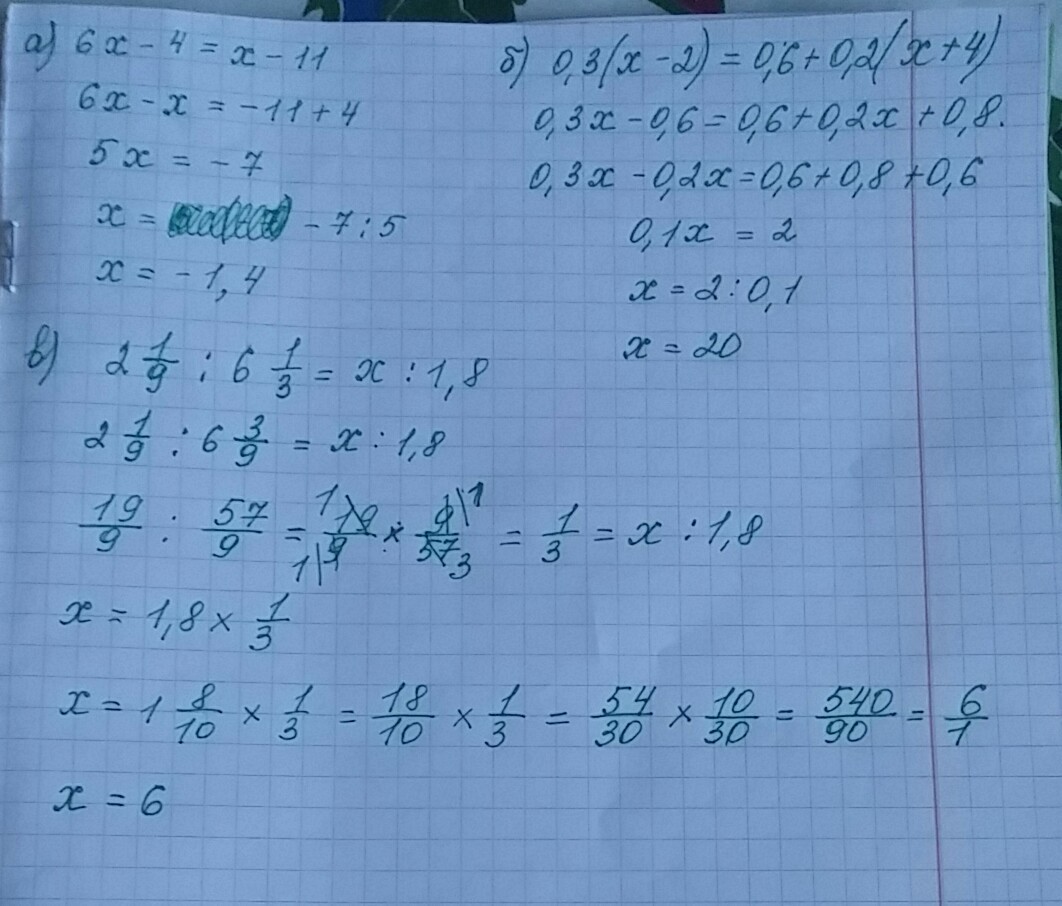 а) 6x - 4 = x - 11
6x - x = -11 + 4
5x = -7
x = - 7 : 5
x = -1,4
б) 0,3(x - 2) = 0,6 + 0,2(x + 4)
0,3x - 0,6 = 0,6 + 0,2x + 0,8.
0,3x - 0,2x = 0,6 + 0,8 + 0,6
0,1x = 2
x = 2 : 0,1
x = 20
в) 2 1/9 : 6 1/3 = x : 1,8
2 1/9 : 6 3/9 = x : 1,8
19/9 : 57/9 = 1 19/9 1 × 9/57 1 3 = 1/3 = x : 1,8
x = 1,8 × 1/3
x = 1 8/10 × 1/3 = 18/10 × 1/3 = 54/30 × 10/30 = 540/90 = 6/1
x = 6